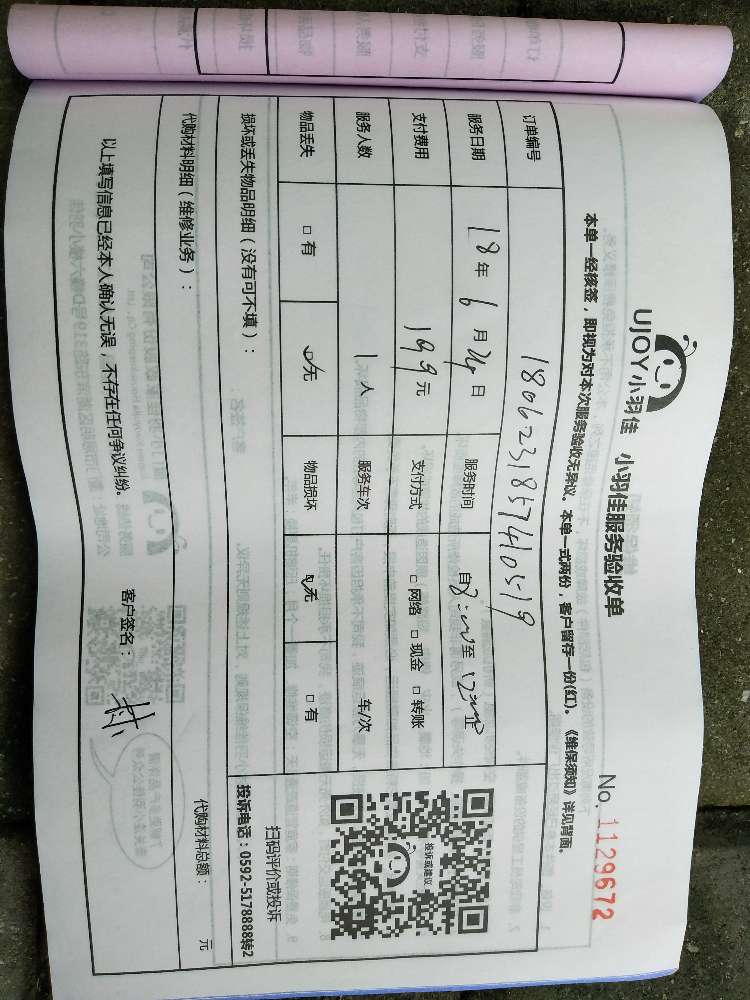 UJOY小羽佳 小羽佳服务验收单
No. 1129672
本单一经核签，即视为对本次服务验收无异议。本单一式两份，客户留存一份(红)。《维保须知》详见背面。
订单编号 180623185741051 9
服务日期 18年6月24日 服务时间 自8:00至12:00止
支付费用 199元 支付方式 □网络 □现金 □转账
服务人数 1人 服务车次 车/次
物品丢失 □有 ☑无 物品损坏 ☑无 □有
投诉或建议
扫码评价或投诉
投诉电话：0592-5178888转2
损坏或丢失物品明细（没有可不填）：
代购材料明细（维修业务）： 代购材料总额： 元
以上填写信息已经本人确认无误，不存在任何争议纠纷。 客户签名：